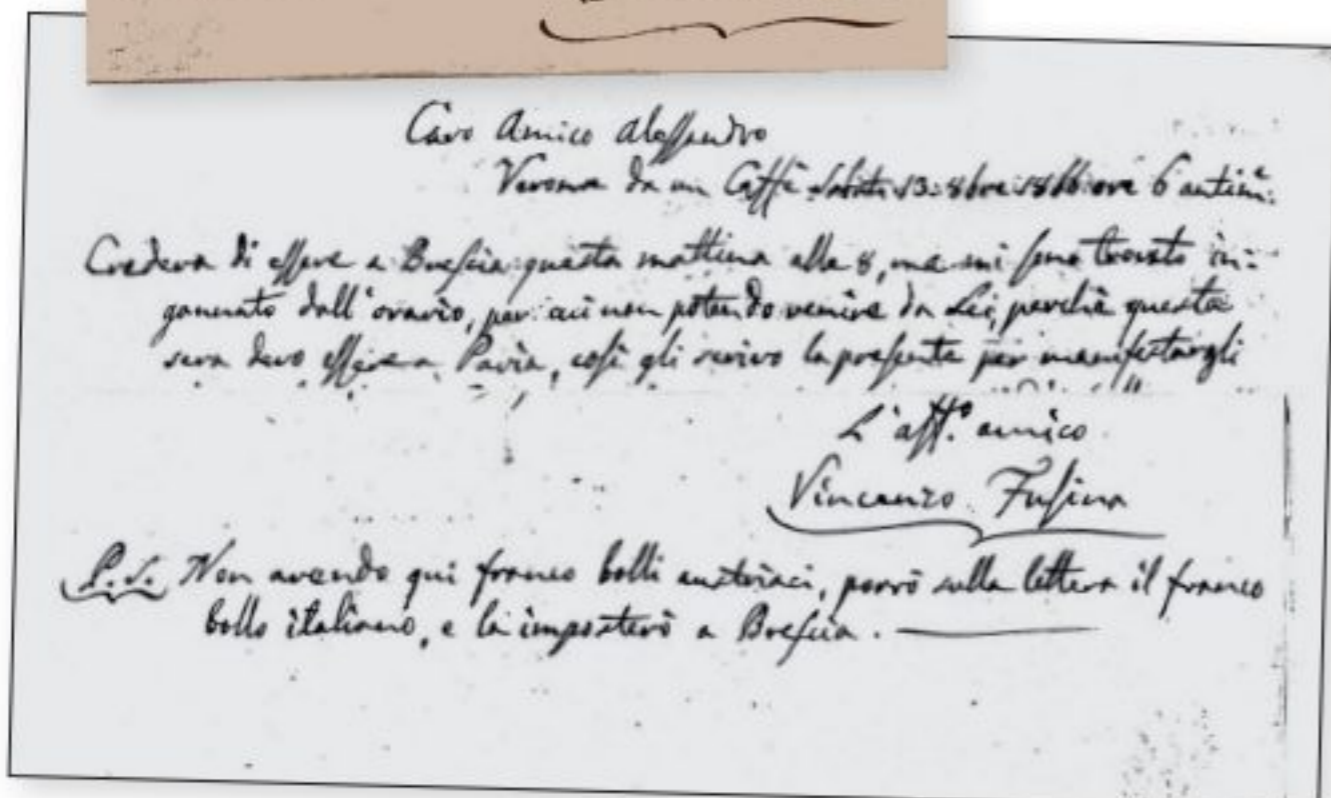 Caro Amico Alessandro
Verona da un Caffè Sabato 13: 8bre: 1866 ore 6 antim:
Credeva di essere a Brescia questa mattina alle 8, ma mi sono trovato in:
gannato dall'orario, per cui non potendo venire da Lei, perchè questa
sera devo essere a Pavia, così gli scrivo la presente per manifestargli
L'aff.º amico
Vincenzo Fusina
P.S. Non avendo qui franco bolli austriaci, porrò sulla lettera il franco
bollo italiano, e la imposterò a Brescia.